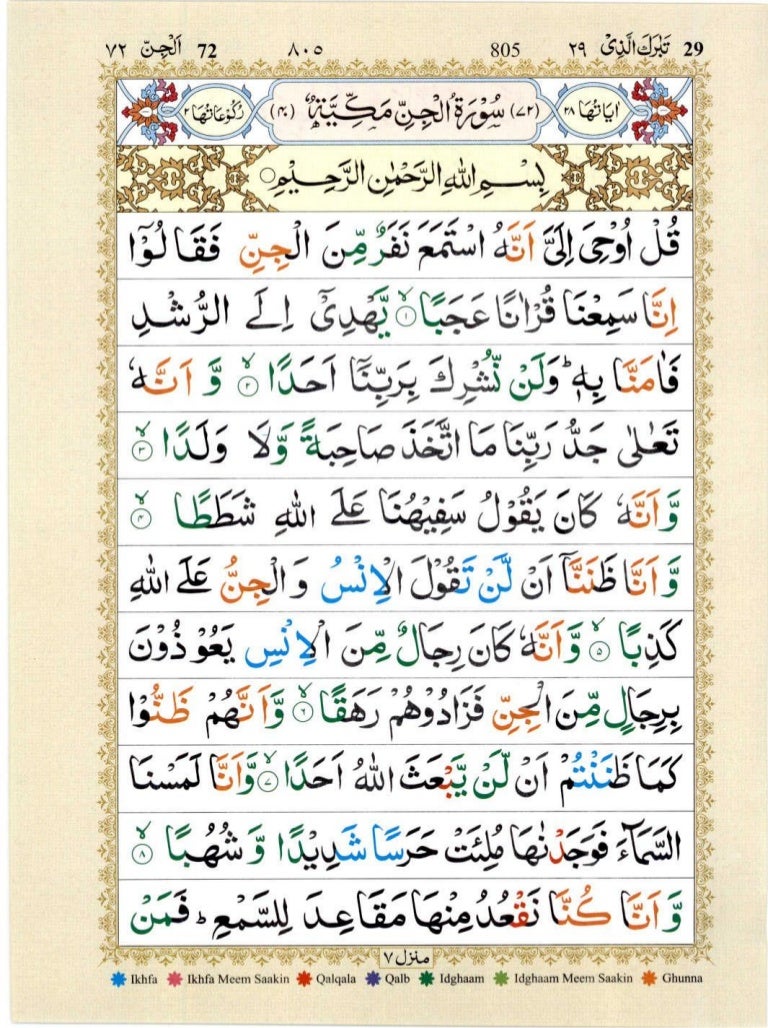 29 تَبٰرَكَ الَّذِىْ ٢٩ 805 ٨٠٥ 72 اَلْجِنّ ٧٢
اٰيَاتُهَا ٢٨ (٧٢) سُوْرَةُ الْجِنِّ مَكِّيَّةٌ (٤٠) رُكُوْعَاتُهَا ٢
بِسْمِ اللهِ الرَّحْمٰنِ الرَّحِيْمِ
قُلْ اُوْحِىَ اِلَىَّ اَنَّهُ اسْتَمَعَ نَفَرٌ مِّنَ الْجِنِّ فَقَالُوْٓا
اِنَّا سَمِعْنَا قُرْاٰنًا عَجَبًا ۙ‏﴿۱﴾ يَّهْدِىْٓ اِلَى الرُّشْدِ
فَاٰمَنَّا بِهٖ ؕ وَلَنْ نُّشْرِكَ بِرَبِّنَاۤ اَحَدًا ۙ‏﴿۲﴾ وَّ اَنَّهٗ
تَعٰلٰى جَدُّ رَبِّنَا مَا اتَّخَذَ صَاحِبَةً وَّلَا وَلَدًا ۙ‏﴿۳﴾
وَّاَنَّهٗ كَانَ يَقُوْلُ سَفِيْهُنَا عَلَى اللهِ شَطَطًا ۙ‏﴿۴﴾
وَّ اَنَّا ظَنَنَّاۤ اَنْ لَّنْ تَقُوْلَ الْاِنْسُ وَ الْجِنُّ عَلَى اللهِ
كَذِبًا ۙ‏﴿۵﴾ وَّاَنَّهٗ كَانَ رِجَالٌ مِّنَ الْاِنْسِ يَعُوْذُوْنَ
بِرِجَالٍ مِّنَ الْجِنِّ فَزَادُوْهُمْ رَهَقًا ۙ‏﴿۶﴾ وَّاَنَّهُمْ ظَنُّوْا
كَمَا ظَنَنْتُمْ اَنْ لَّنْ يَّبْعَثَ اللهُ اَحَدًا ۙ‏﴿۷﴾ وَّاَنَّا لَمَسْنَا
السَّمَآءَ فَوَجَدْنٰهَا مُلِئَتْ حَرَسًا شَدِيْدًا وَّ شُهُبًا ۙ‏﴿۸﴾
وَّ اَنَّا كُنَّا نَقْعُدُ مِنْهَا مَقَاعِدَ لِلسَّمْعِ ؕ فَمَنْ
منزل ٧
Ikhfa Ikhfa Meem Saakin Qalqala Qalb Idghaam Idghaam Meem Saakin Ghunna